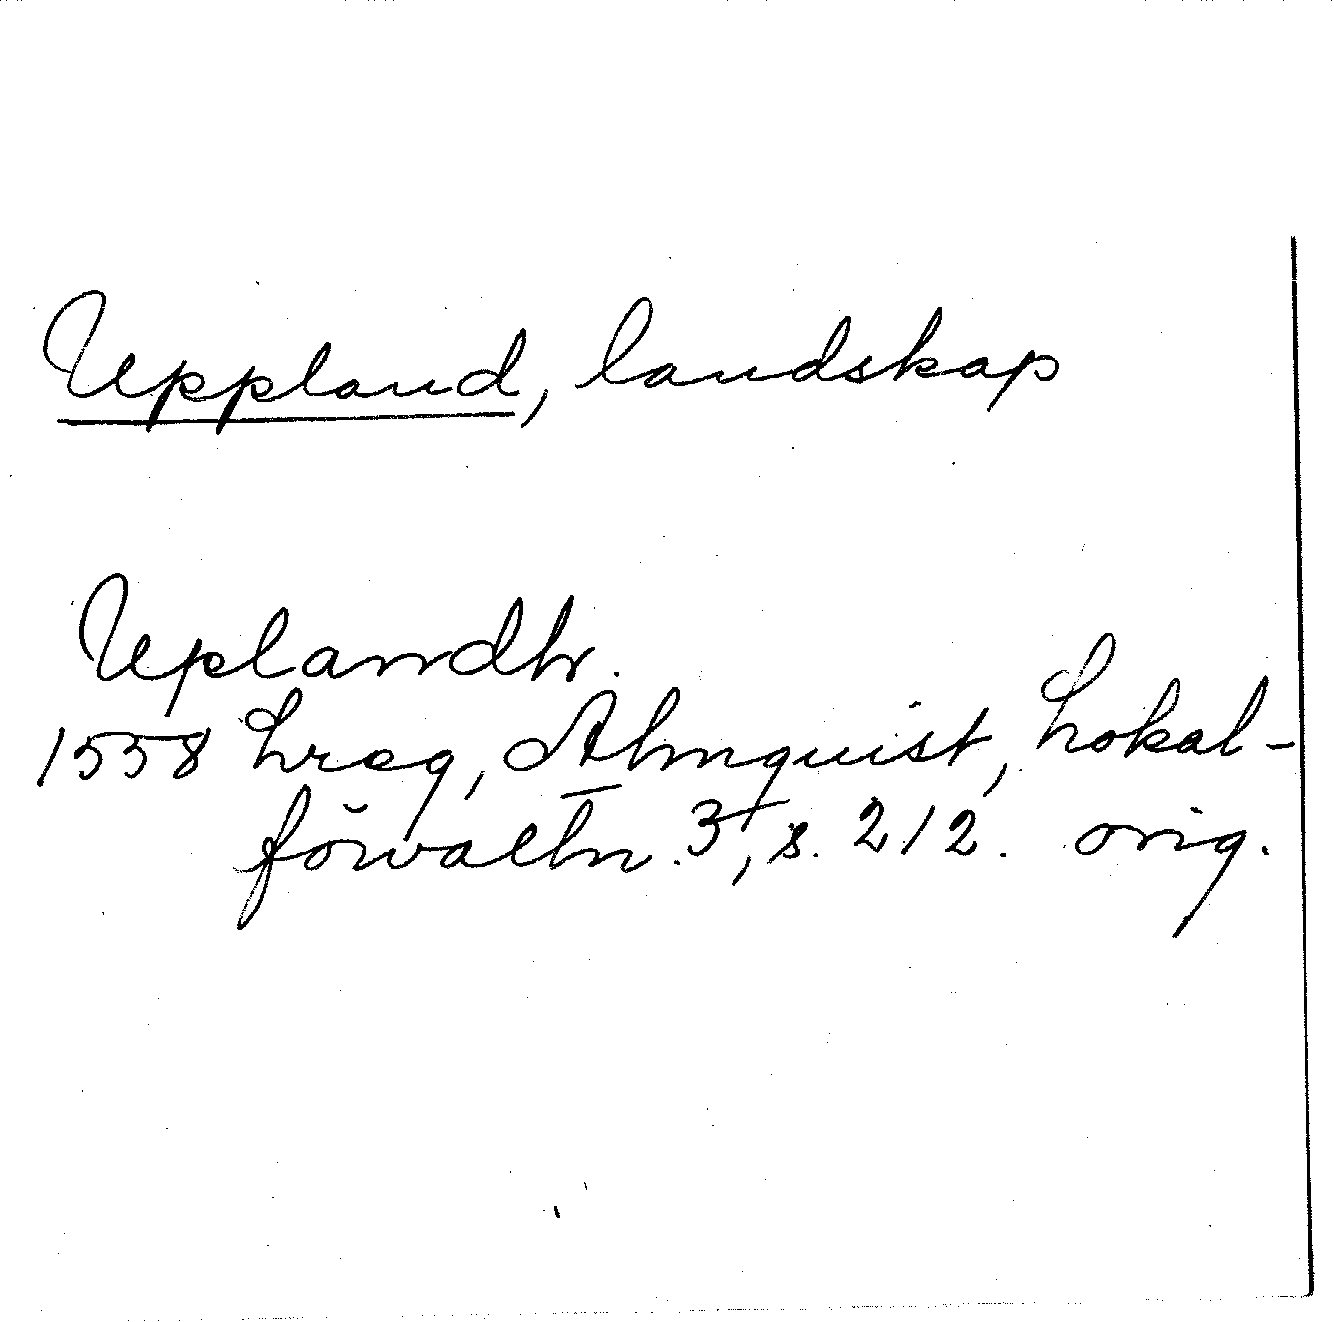 Uppland, landskap
Uplandh.
1558 Lreg, Almquist, Lokal-
förvaltn. 3, s. 212. orig.